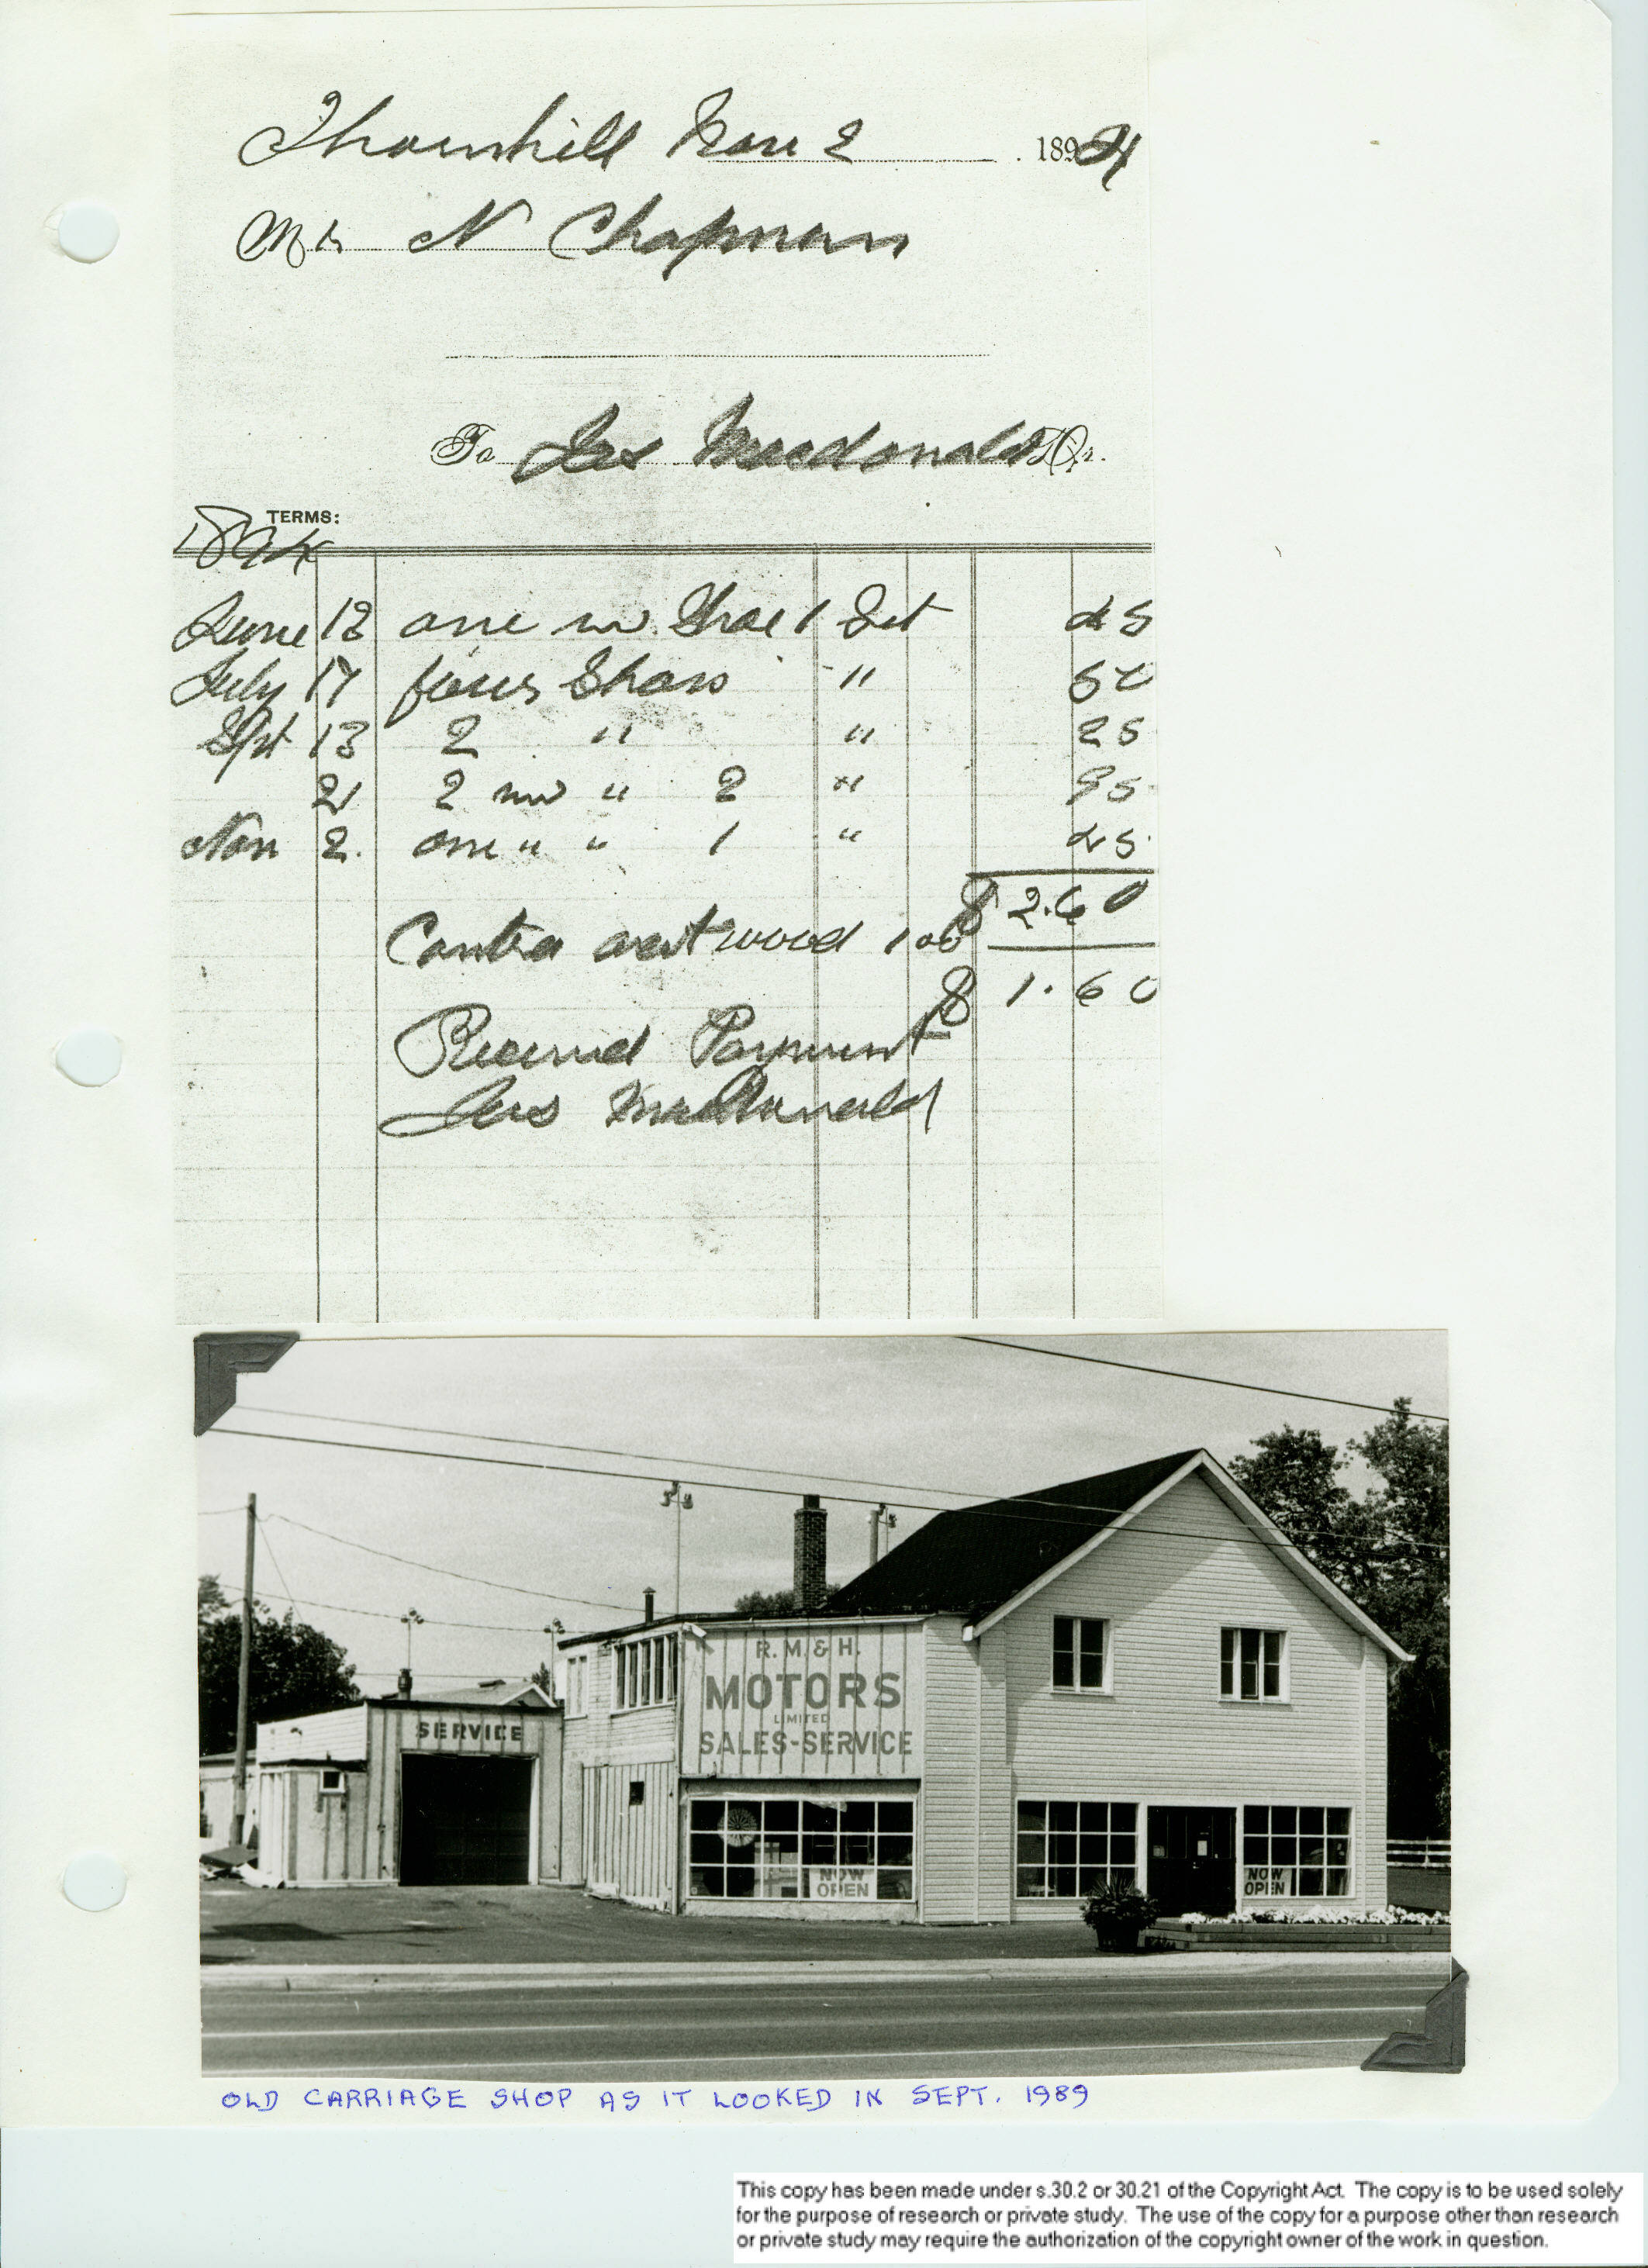 Thornhill Nov 2 1894
Mr N Chapman
To Jas Macdonald Dr.
TERMS:
1894
June 12 one nw Shoe 1 Set 45
July 17 four Shoes " 50
Sept 13 2 " " 25
21 2 nw " 2 " 95
Nov 2. one " " 1 " 45
$ 2.60
Contra wood 1 00
$ 1.60
Received Payment
Jas MacDonald
R. M. & H.
MOTORS
LIMITED
SALES-SERVICE
SERVICE
NOW
OPEN
NOW
OPEN
OLD CARRIAGE SHOP AS IT LOOKED IN SEPT. 1989
This copy has been made under s.30.2 or 30.21 of the Copyright Act. The copy is to be used solely
for the purpose of research or private study. The use of the copy for a purpose other than research
or private study may require the authorization of the copyright owner of the work in question.